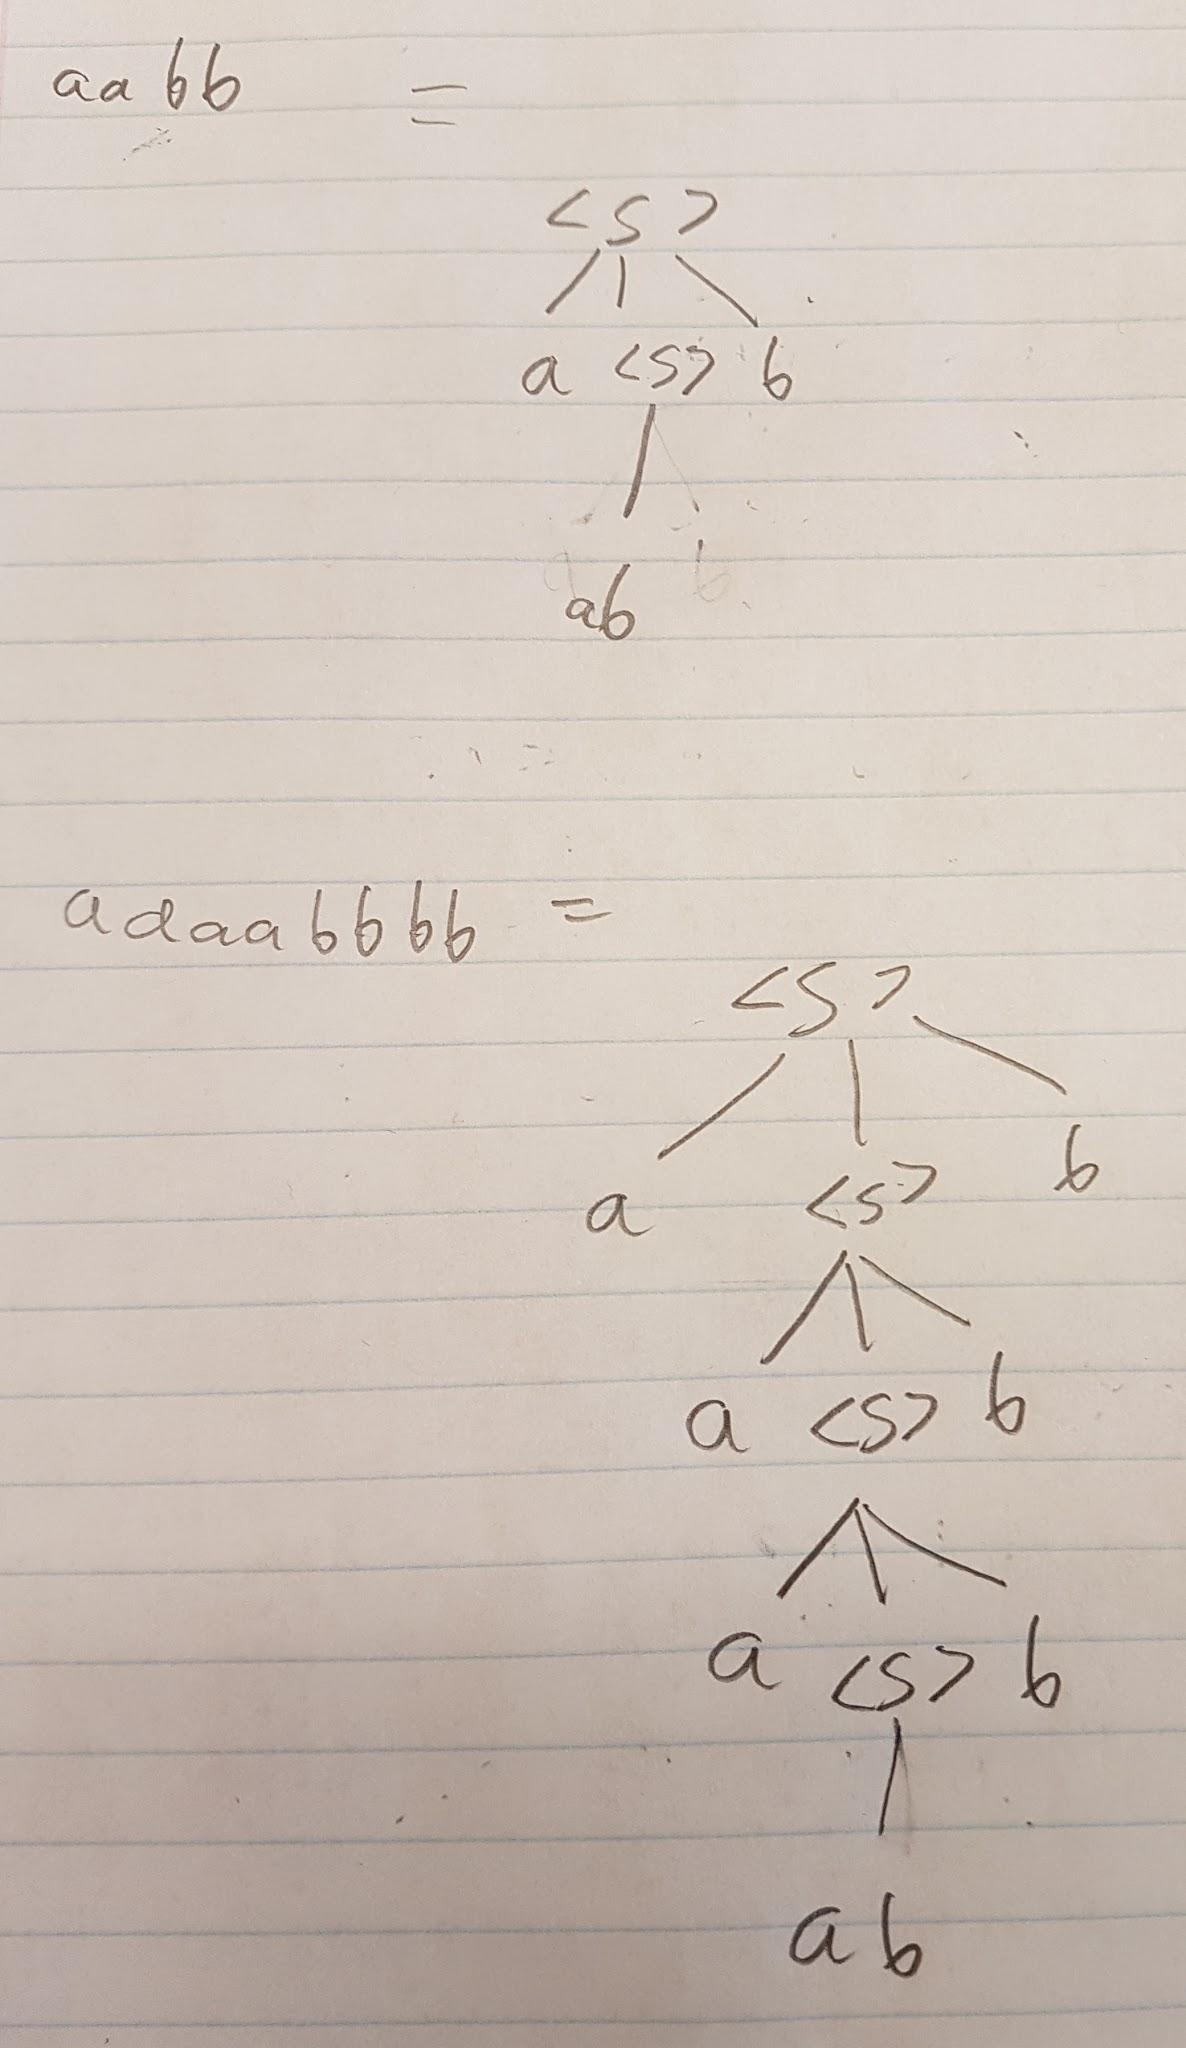 aabb =
<S>
a <S> b
ab
aaaabbbb =
<S>
a <S> b
a <S> b
a <S> b
ab